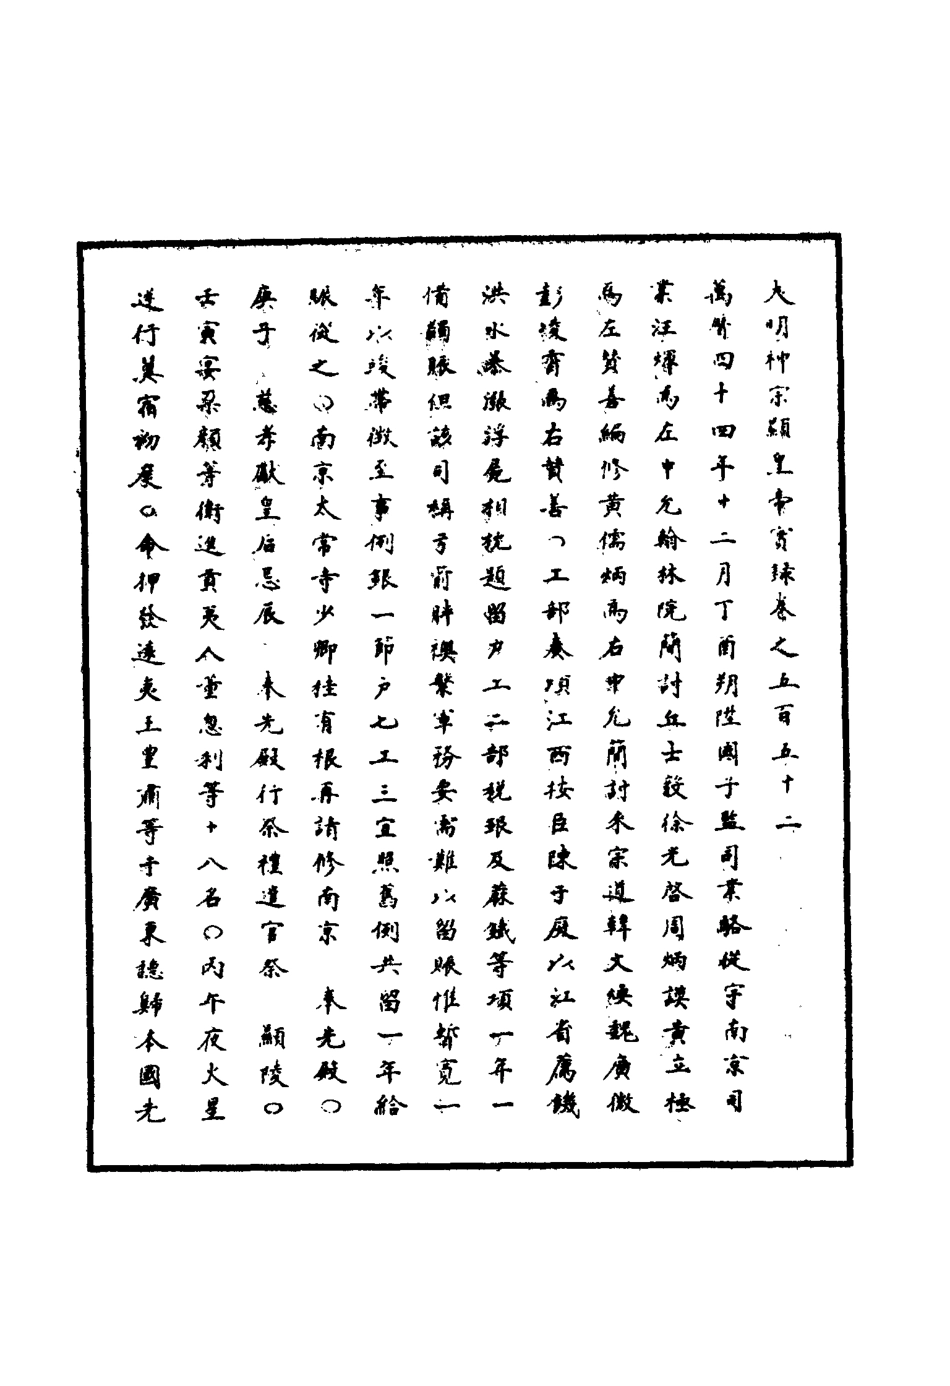 大明神宗顯皇帝實錄卷之五百五十二
萬曆四十四年十二月丁酉朔陞國子監司業駱從宇南京司
業汪煇為左中允翰林院簡討丘士毅徐光啓周炳謨黃立極
為左贊善編修黃儒炳為右中允簡討來宗道韓文煥魏廣微
彭凌霄為右贊善○工部奏項江西按臣陳于庭以江省薦饑
洪水暴漲浮屍相枕題留戶工二部稅銀及蔴鐵等項一年一
備蠲賑但該司稱方前時襖繁軍務要需難以留賑惟暫寬一
年以竣帶徵至事例銀一節戶七工三宜照舊例共留一年給
賑從之○南京太常寺少卿桂有根再請修南京 奉先殿○
庚子 慈孝獻皇后忌辰 奉先殿行祭禮遣官祭 顯陵○
壬寅宴朶顏等衛進貢夷人董忽利等十八名○丙午夜火星
逆行冀宿初度○命押發遠夷王豐肅等于廣東聽歸本國先